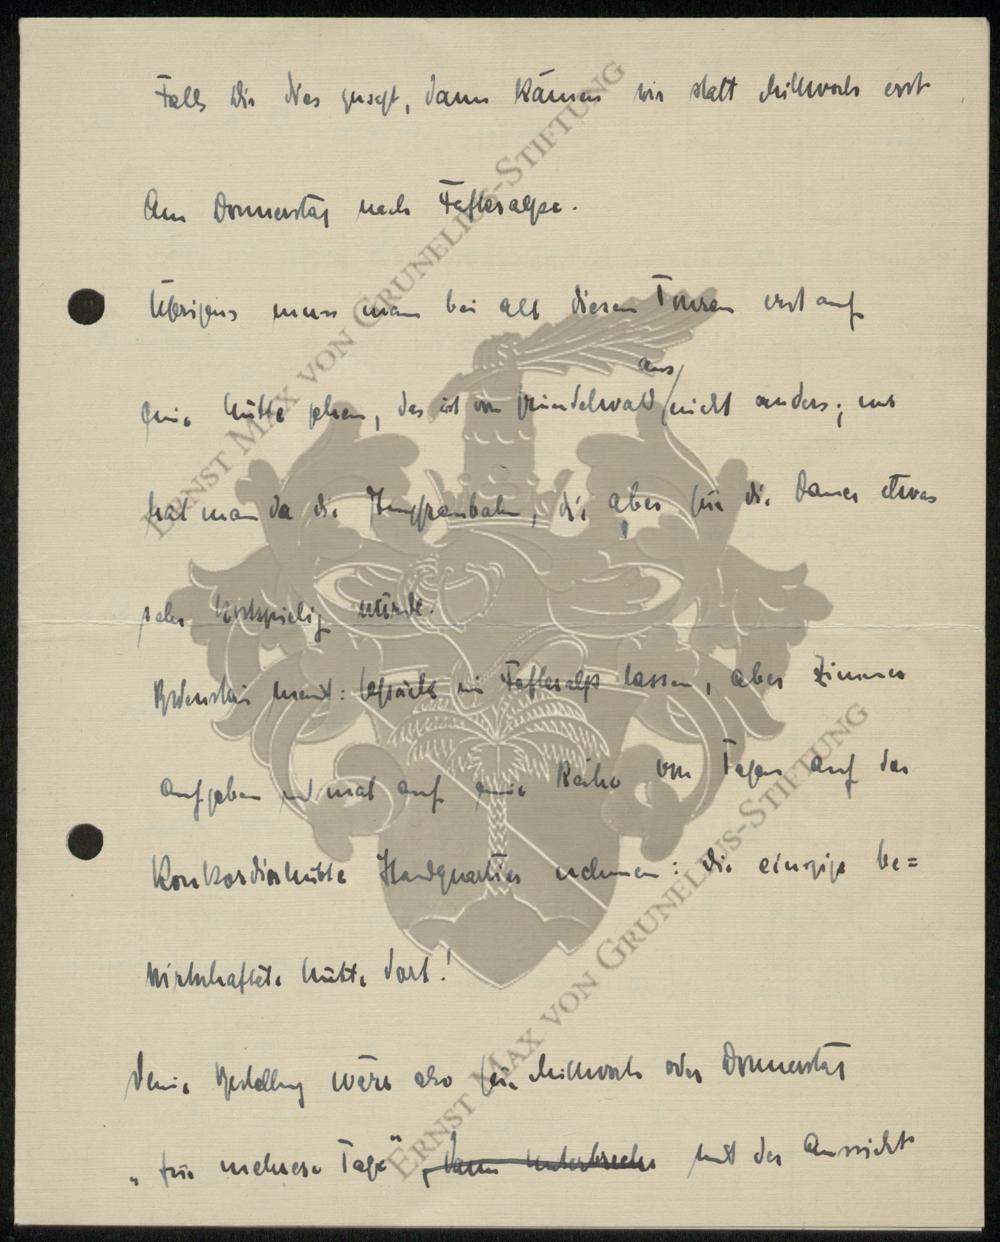 Falls Dir dies zusagt, dann kämen wir statt Mittwoch erst
am Donnerstag nach Fafleralpe.
Übrigens muss man bei all diesen Touren erst auf
eine Hütte gehen, das ist von Grindelwald aus nicht anders; nur
hat man da die Jungfraubahn, die aber für die Dauer etwas
sehr kostspielig würde.
meint: Gepäck in Fafleralp lassen, aber Zimmer
aufgeben und mal auf eine Reihe von Tagen auf der
Konkordiahütte Standquartier nehmen: die einzige be=
wirtschaftete Hütte dort!
Deine Bestellung wäre also für Mittwoch oder Donnerstag
„für mehrere Tage“, dann mit der Aussicht
ERNST MAX VON GRUNELIUS-STIFTUNG
ERNST MAX VON GRUNELIUS-STIFTUNG